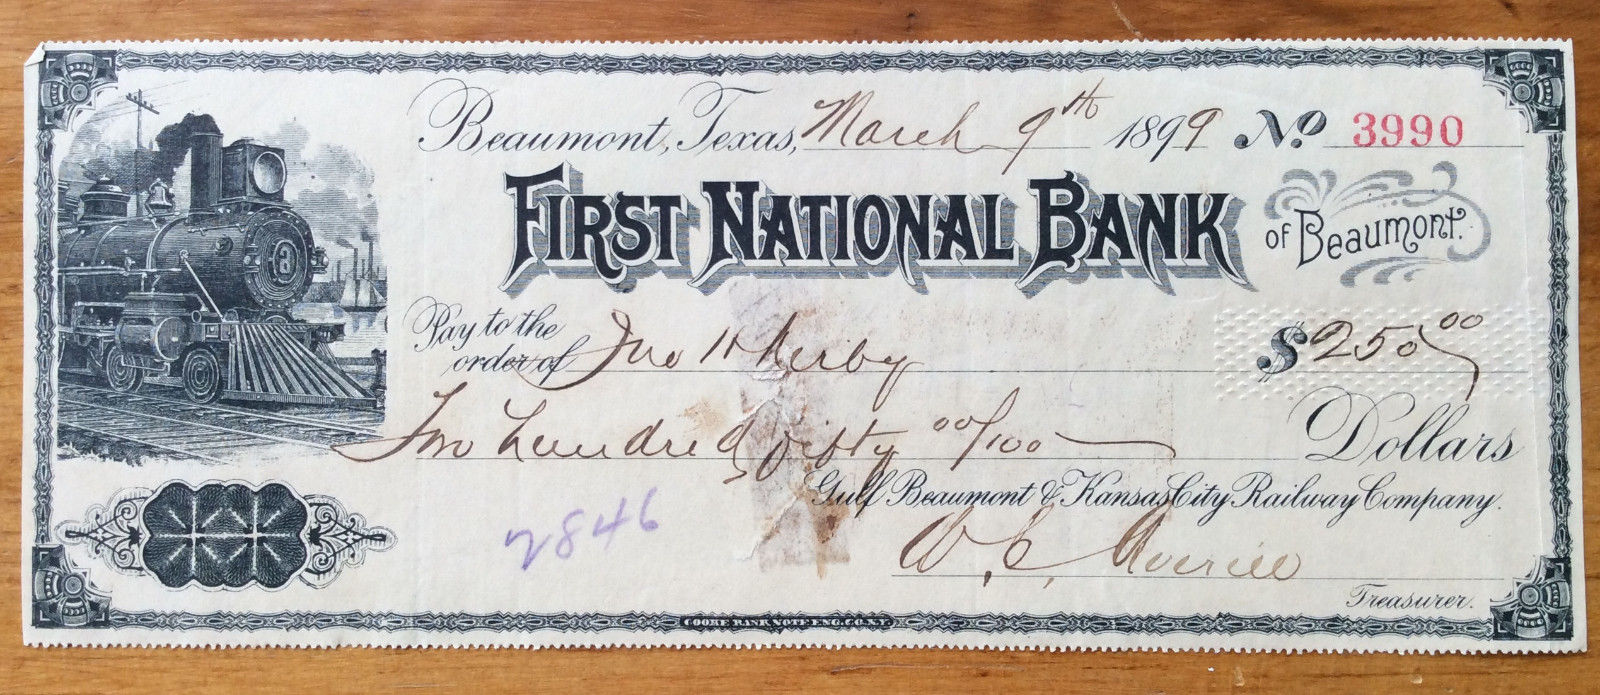 Beaumont, Texas, March 9th 1899 No. 3990
FIRST NATIONAL BANK of Beaumont.
Pay to the order of Jno H Kirby $250 00
Two hundred fifty 00/100 Dollars
Gulf Beaumont & Kansas City Railway Company.
2846
W. C. Averill
Treasurer.
COOKE BANK NOTE ENG. CO. N.Y.